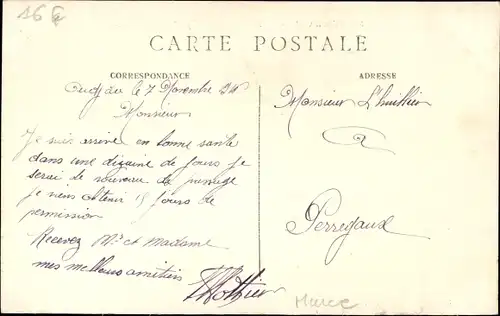 CARTE POSTALE
CORRESPONDANCE
ADRESSE
Oudjda le 7 Novembre
Monsieur
Je suis arrivé en bonne santé
dans une dizaine de jours je
serai de nouveau de passage
je viens obtenir 15 jours de
permission
Recevez Mr et Madame
mes meilleurs amitiés
Monsieur L'huillier
a
Perregaux
Maroc